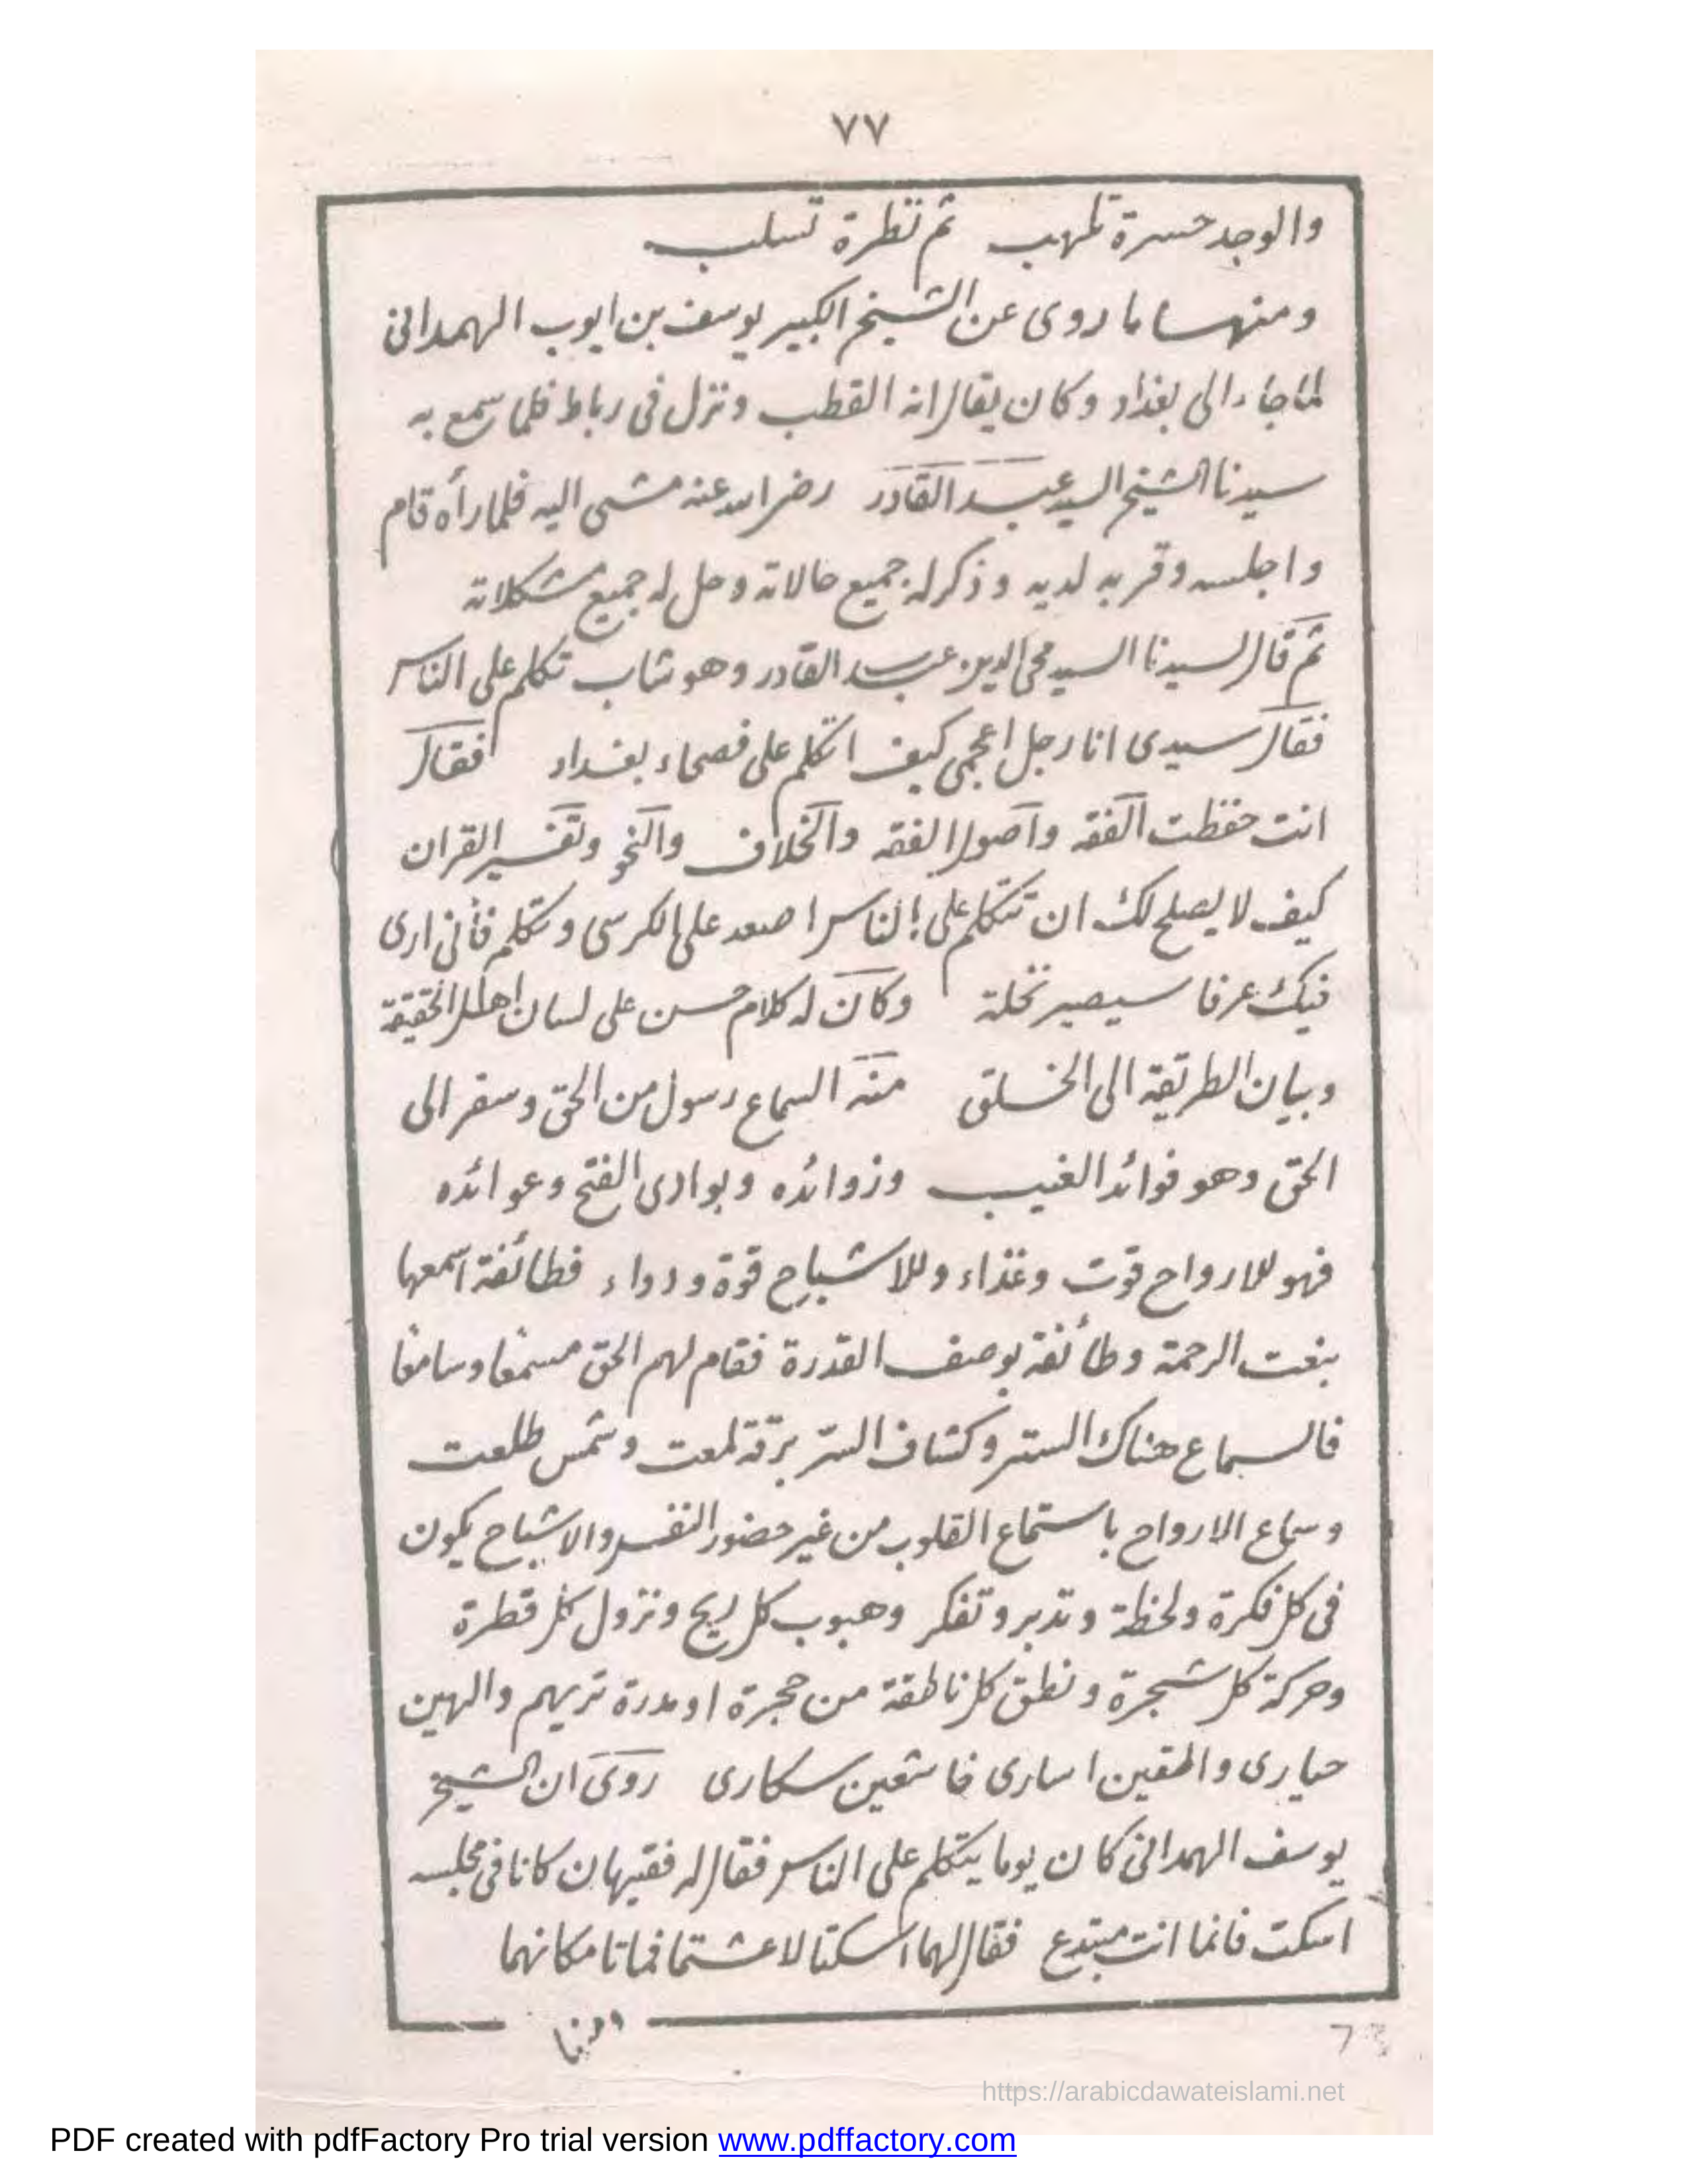 ٧٧
والوجد حسرة تلهب ثم نظرة تسلب
ومنها ما روى عن الشيخ الكبير يوسف بن ايوب الهمدانى
لما جاء الى بغداد وكان يقال انه القطب ونزل فى رباط فلما سمع به
سيدنا الشيخ السيد عبد القادر رضى الله عنه مشى اليه فلما رأه قام
واجلسه وقربه لديه وذكر له جميع حالاته وحل له جميع مشكلاته
ثم قال لسيدنا السيد محى الدين عبد القادر وهو شاب تكلم على الناس
فقال سيدى انا رجل اعجمى كيف اتكلم على فصحاء بغداد فقال
انت حفظت الفقه واصول الفقه والخلاف والنحو وتفسير القران
كيف لا يصلح لك ان تتكلم على الناس اصعد على الكرسى وتكلم فأنى ارى
فيك عرقا سيصير نخلة وكان له كلام حسن على لسان اهل الحقيقة
وبيان الطريقة الى الخلق منه السماع رسول من الحق وسفر الى
الحق وهو فوائد الغيب وزوائده وبوادى الفتح وعوائده
فهو للارواح قوت وغذاء وللاشباح قوة ودواء فطائفة اسمعها
بنعت الرحمة وطائفة بوصف القدرة فقام لهم الحق مسمعا وسامعا
فالسماع هتاك الستر وكشاف السر برقة لمعت وشمس طلعت
وسماع الارواح باستماع القلوب من غير حضور النفس والاشباح يكون
فى كل فكرة ولحظة وتدبر وتفكر وهبوب كل ريح ونزول كل قطرة
وحركة كل شجرة ونطق كل ناطقة من حجرة او مدرة تريهم والهين
حيارى واقفين اسارى خاشعين سكارى روى ان الشيخ
يوسف الهمدانى كان يوما يتكلم على الناس فقال له فقيهان كانا فى مجلسه
اسكت فانما انت مبتدع فقال لهما اسكتا لاعشتما فماتا مكانهما
ومنها
https://arabicdawateislami.net
PDF created with pdfFactory Pro trial version www.pdffactory.com